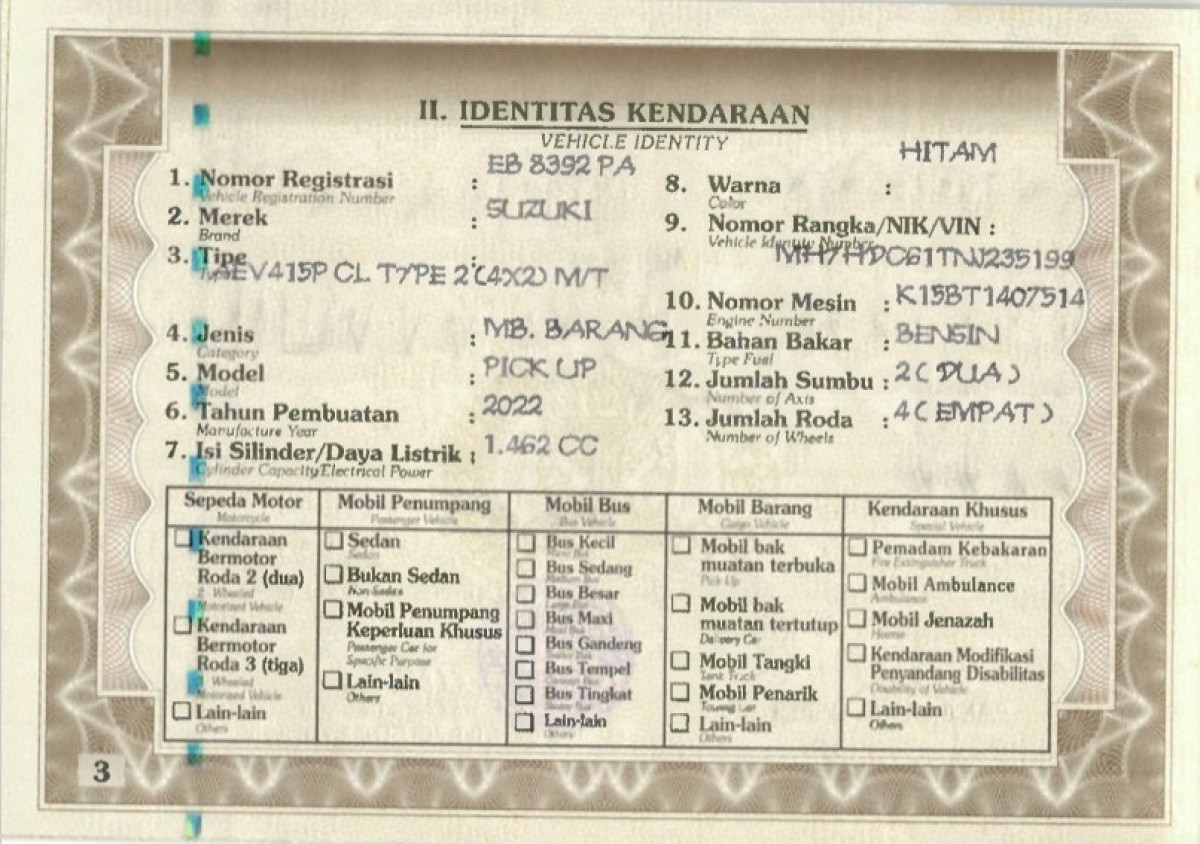 II. IDENTITAS KENDARAAN
VEHICLE IDENTITY
1. Nomor Registrasi : EB 8392 PA
Vehicle Registration Number
2. Merek : SUZUKI
Brand
3. Tipe :
Type
AEV415P CL TYPE 2 (4X2) M/T
4. Jenis : MB. BARANG
Category
5. Model : PICK UP
Model
6. Tahun Pembuatan : 2022
Manufacture Year
7. Isi Silinder/Daya Listrik : 1.462 CC
Cylinder Capacity/Electrical Power
8. Warna : HITAM
Color
9. Nomor Rangka/NIK/VIN :
Vehicle Identity Number
MH7HDC61TNJ235199
10. Nomor Mesin : K15BT1407514
Engine Number
11. Bahan Bakar : BENSIN
Type Fuel
12. Jumlah Sumbu : 2 ( DUA )
Number of Axis
13. Jumlah Roda : 4 ( EMPAT )
Number of Wheels
Sepeda Motor
Motorcycle
Kendaraan
Bermotor
Roda 2 (dua)
2 Wheeled
Motorized Vehicle
Kendaraan
Bermotor
Roda 3 (tiga)
3 Wheeled
Motorized Vehicle
Lain-lain
Others
Mobil Penumpang
Passenger Vehicle
Sedan
Sedan
Bukan Sedan
Non Sedan
Mobil Penumpang
Keperluan Khusus
Passenger Car for
Specific Purpose
Lain-lain
Others
Mobil Bus
Bus Vehicle
Bus Kecil
Bus Sedang
Medium Bus
Bus Besar
Large Bus
Bus Maxi
Maxi Bus
Bus Gandeng
Bus Tempel
Bus Tingkat
Lain-lain
Others
Mobil Barang
Cargo Vehicle
Mobil bak
muatan terbuka
Pick Up
Mobil bak
muatan tertutup
Delivery Car
Mobil Tangki
Tank Truck
Mobil Penarik
Towing Car
Lain-lain
Others
Kendaraan Khusus
Special Vehicle
Pemadam Kebakaran
Fire Extinguisher Truck
Mobil Ambulance
Ambulance
Mobil Jenazah
Hearse
Kendaraan Modifikasi
Penyandang Disabilitas
Disability of Vehicle
Lain-lain
Others
3